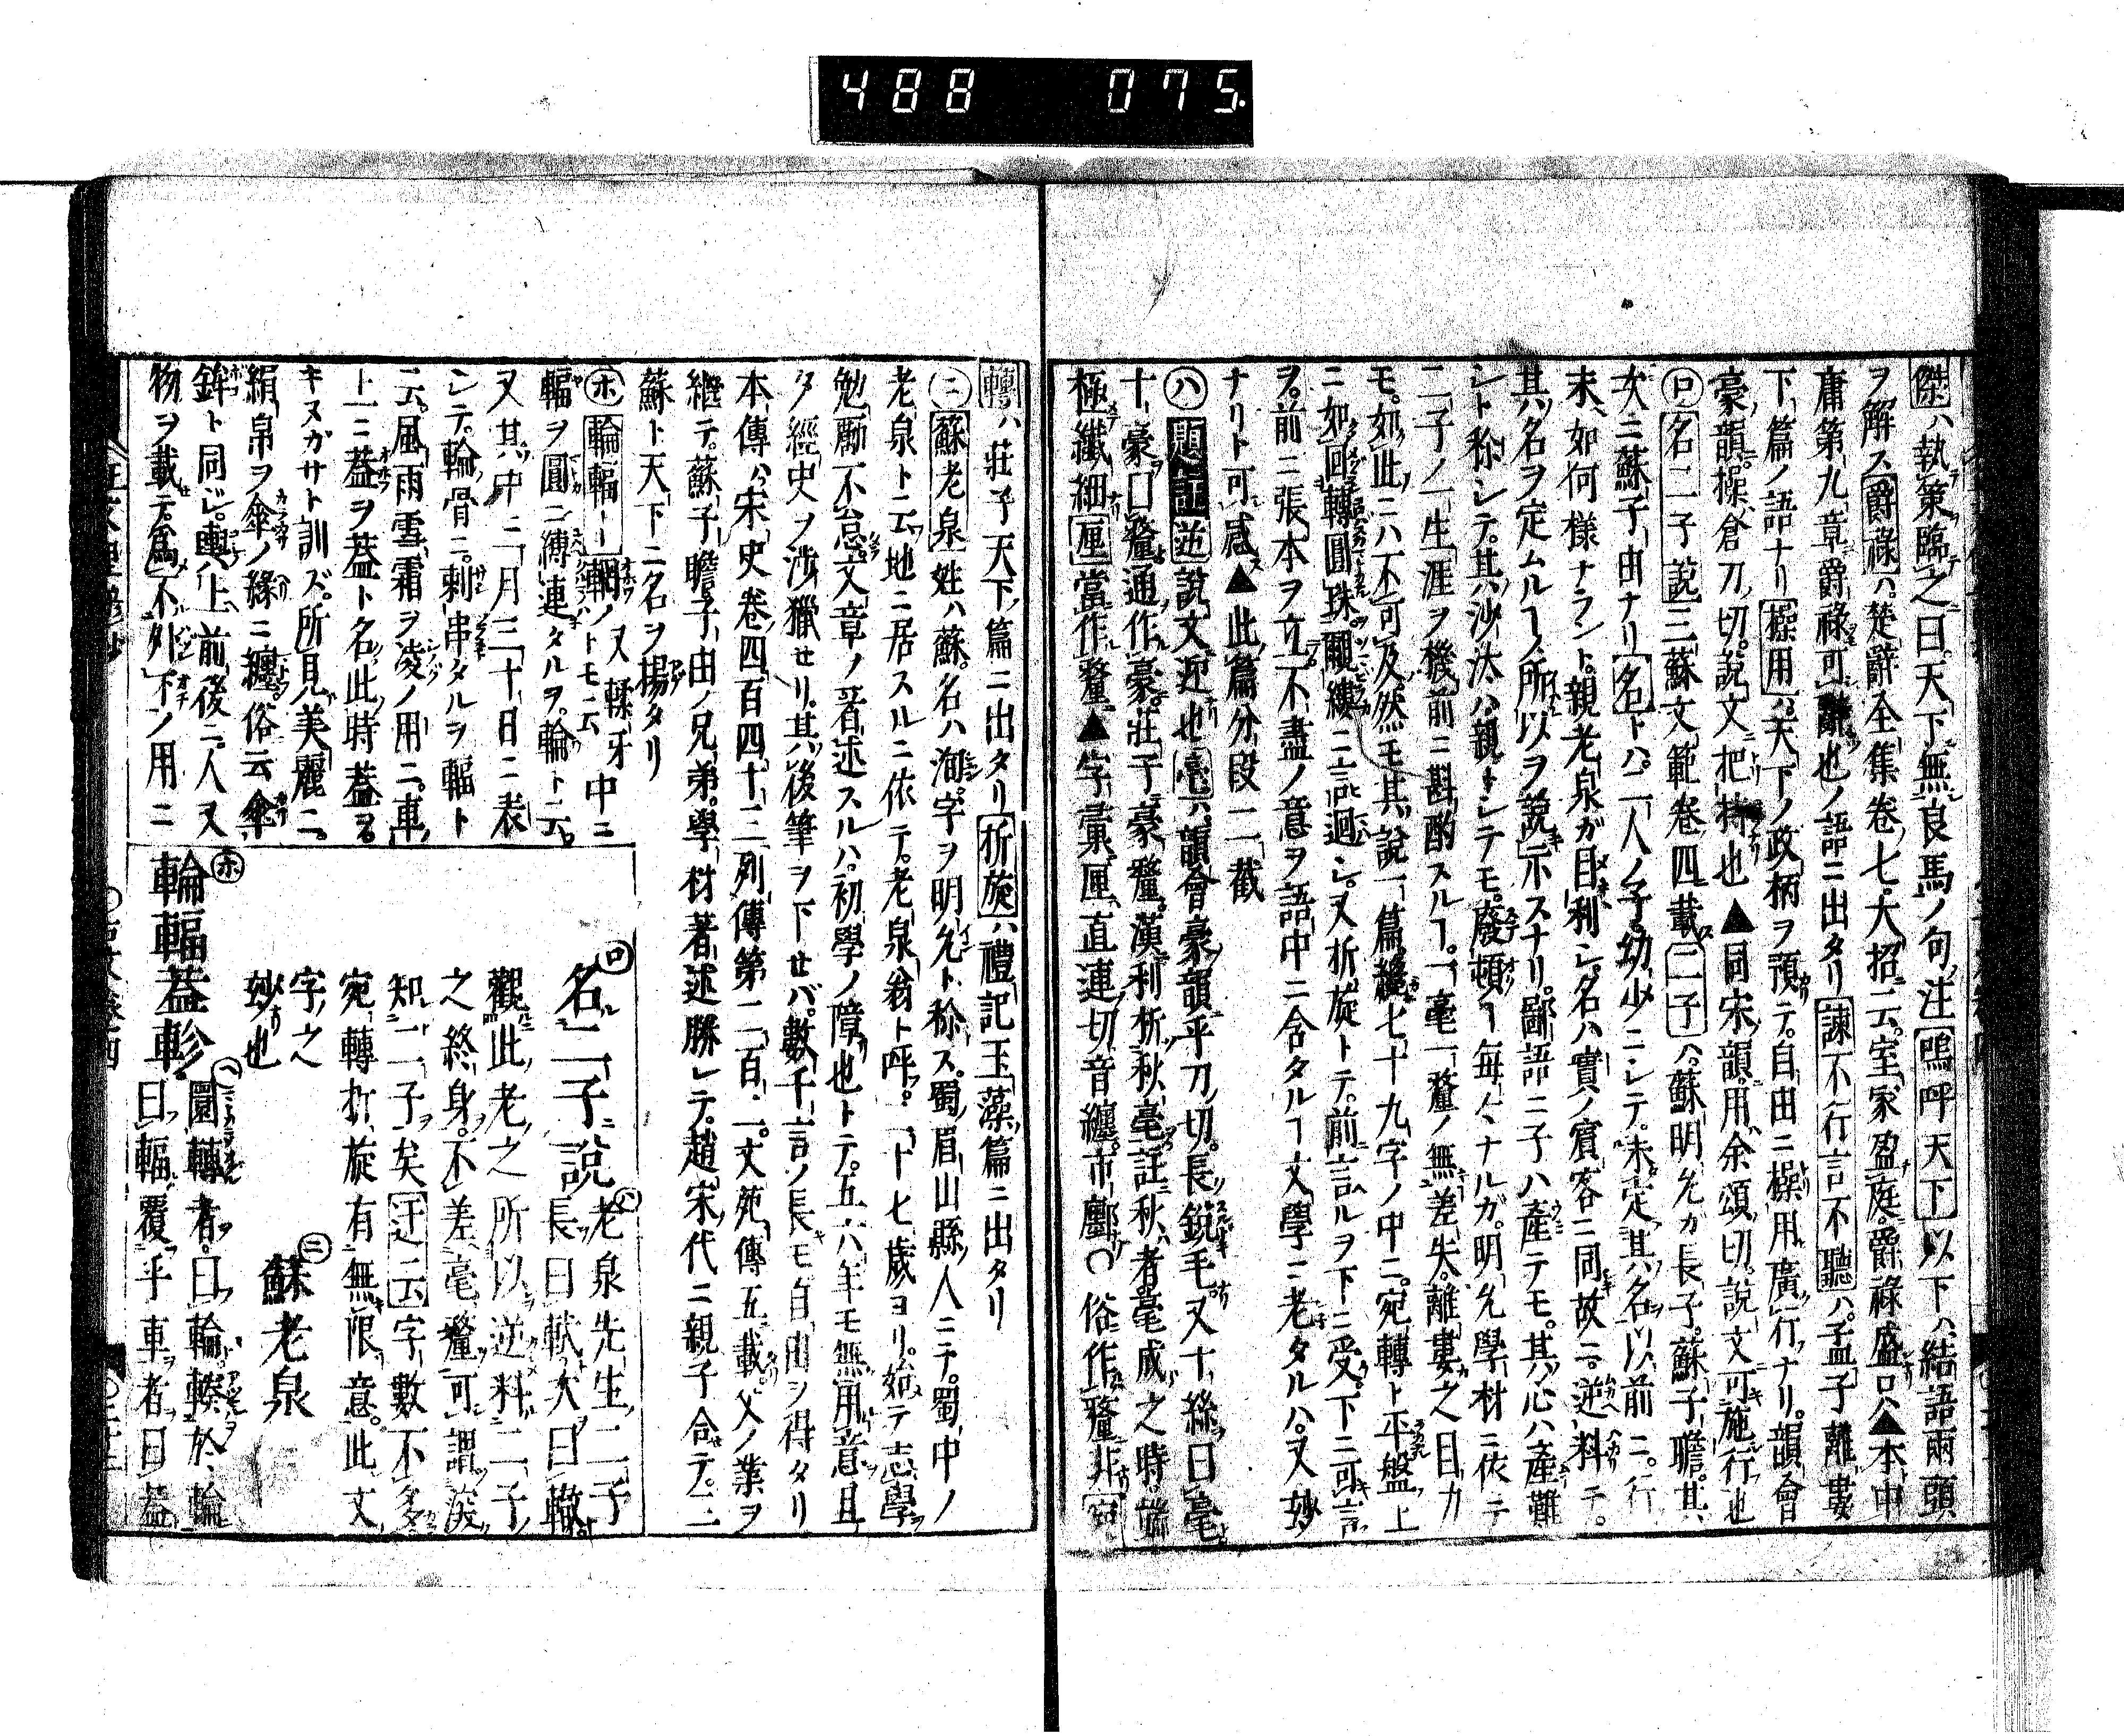 488 075
傑ハ執策臨之曰天下無良馬ノ句注嗚呼天下以下ハ結語兩頭
ヲ解ス爵祿ハ楚辭全集卷七大招云室家盈庭爵祿盛只▲本中
庸第九章爵祿可辭也ノ語ニ出タリ諫不行言不聽ハ孟子離婁
下篇ノ語ナリ操用ハ天下ノ政柄ヲ預テ自由ニ操用廣行ナリ韻會
豪韻操倉刀切說文把持也▲同宋韻用余頌切說文可施行也
㋺名二子說三蘇文範卷四載二子ハ蘇明允ガ長子蘇子瞻其
次ニ蘇子由ナリ名トハ二人ノ子幼少ニシテ未定其名以前ニ行
末如何樣ナラント親老泉ガ目利シ名ハ實ノ賓客ニ同故ニ逆料テ
其名ヲ定ムルヿノ所以ヲ說示スナリ鄙語ニ子ハ產テモ其心ハ產難
シト稱シテ其沙汰ハ親トシテモ廢頓ヿ每々ナルガ明允學材ニ依テ
二子ノ一生涯ヲ機前ニ斟酌スルヿ一毫一釐ノ無差失離婁之目力
モ如此ニハ不可及然モ其說一篇纔七十九字ノ中ニ宛轉ト平盤上
ニ如回轉圓珠覼縷ニ言迴シ又折旋トテ前言ルヲ下ニ受下ニ可言
ヲ前ニ張本ヲ立不盡ノ意ヲ語中ニ含タルヿ文學ニ老タルハ又妙
ナリト可感▲此篇分段二截
㋩題註逆說文迎也毫ハ韻會豪韻乎刀切長銳毛又十絲曰毫
十豪曰釐通作豪莊子豪釐漢利析秋毫註秋者毫成之時端
極纖細厘當作釐▲字彙厘直連切音纏市廛○俗作釐非宛
轉ハ莊子天下篇ニ出タリ折旋ハ禮記玉藻篇ニ出タリ
㊁蘇老泉姓ハ蘇名ハ洵字ヲ明允ト稱ス蜀眉山縣人ニテ蜀中ノ
老泉ト云地ニ居スルニ依テ老泉翁ト呼二十七歲ヨリ始テ志學
勉勵不怠文章ノ著述スルハ初學ノ障也トテ五六年モ無用意且
夕經史ノ涉獵セリ其後筆ヲ下セバ數千言ノ長モ自由ヲ得タリ
本傳ハ宋史卷四百四十三列傳第二百二文苑傳五載父ノ業ヲ
繼テ蘇子瞻子由ノ兄弟學材著述勝レテ趙宋代ニ親子合テ三
蘇ト天下ニ名ヲ揚タリ
㋭輪輻ー輞ノ又輮牙トモニ云中ニ
輻ヲ圓ニ縛連タルヲ輪ト云
又其中ニ一月三十日ニ表
シテ輪骨ニ刺串タルヲ輻ト
云風雨雪霜ヲ凌ノ用ニ車
上ニ蓋ヲ蓋ト名此時蓋ヲ
キヌガサト訓ズ所見美麗ニ
絹帛ヲ傘ノ緣ニ纏俗云傘
鉾ト同ジ輿上前後ニ人又
物ヲ載テ爲不外下ノ用ニ
㋺名二子說㋩老泉先生二子
長曰軾次曰轍
觀此老之所以逆料二子
之終身不差毫釐可謂深
知二子矣迂云字數不多
宛轉折旋有無限意此文
字之
妙也
㊁蘇老泉
㋭輪輻蓋軫㋬圜轉者曰輪輳於輪
曰輻覆乎車者曰蓋